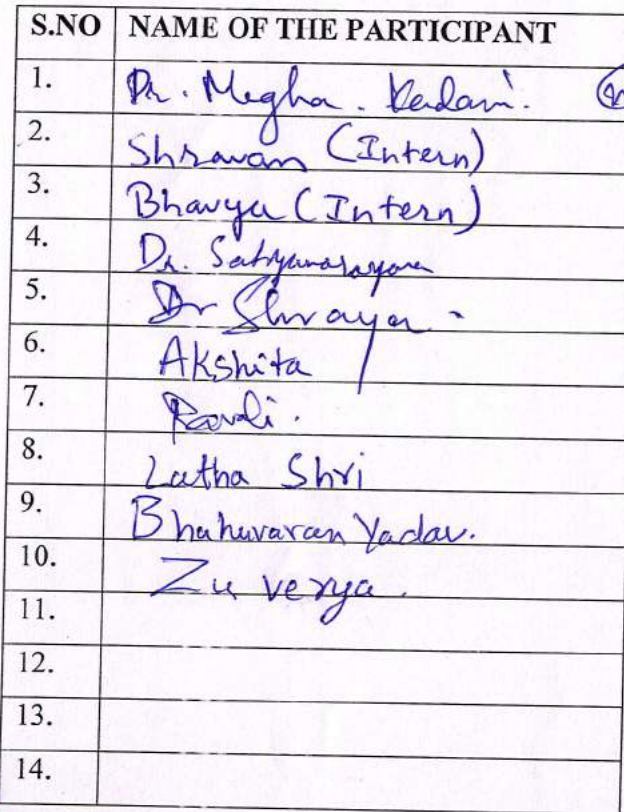 S.NO NAME OF THE PARTICIPANT
1. Dr. Megha. Kadam.
2. Shravan (Intern)
3. Bhavya (Intern)
4. Dr. Satyanarayana
5. Dr Shraya
6. Akshita
7. Ravali.
8. Latha Shri
9. Bhahuvaran Yadav.
10. Zu verya.
11.
12.
13.
14.